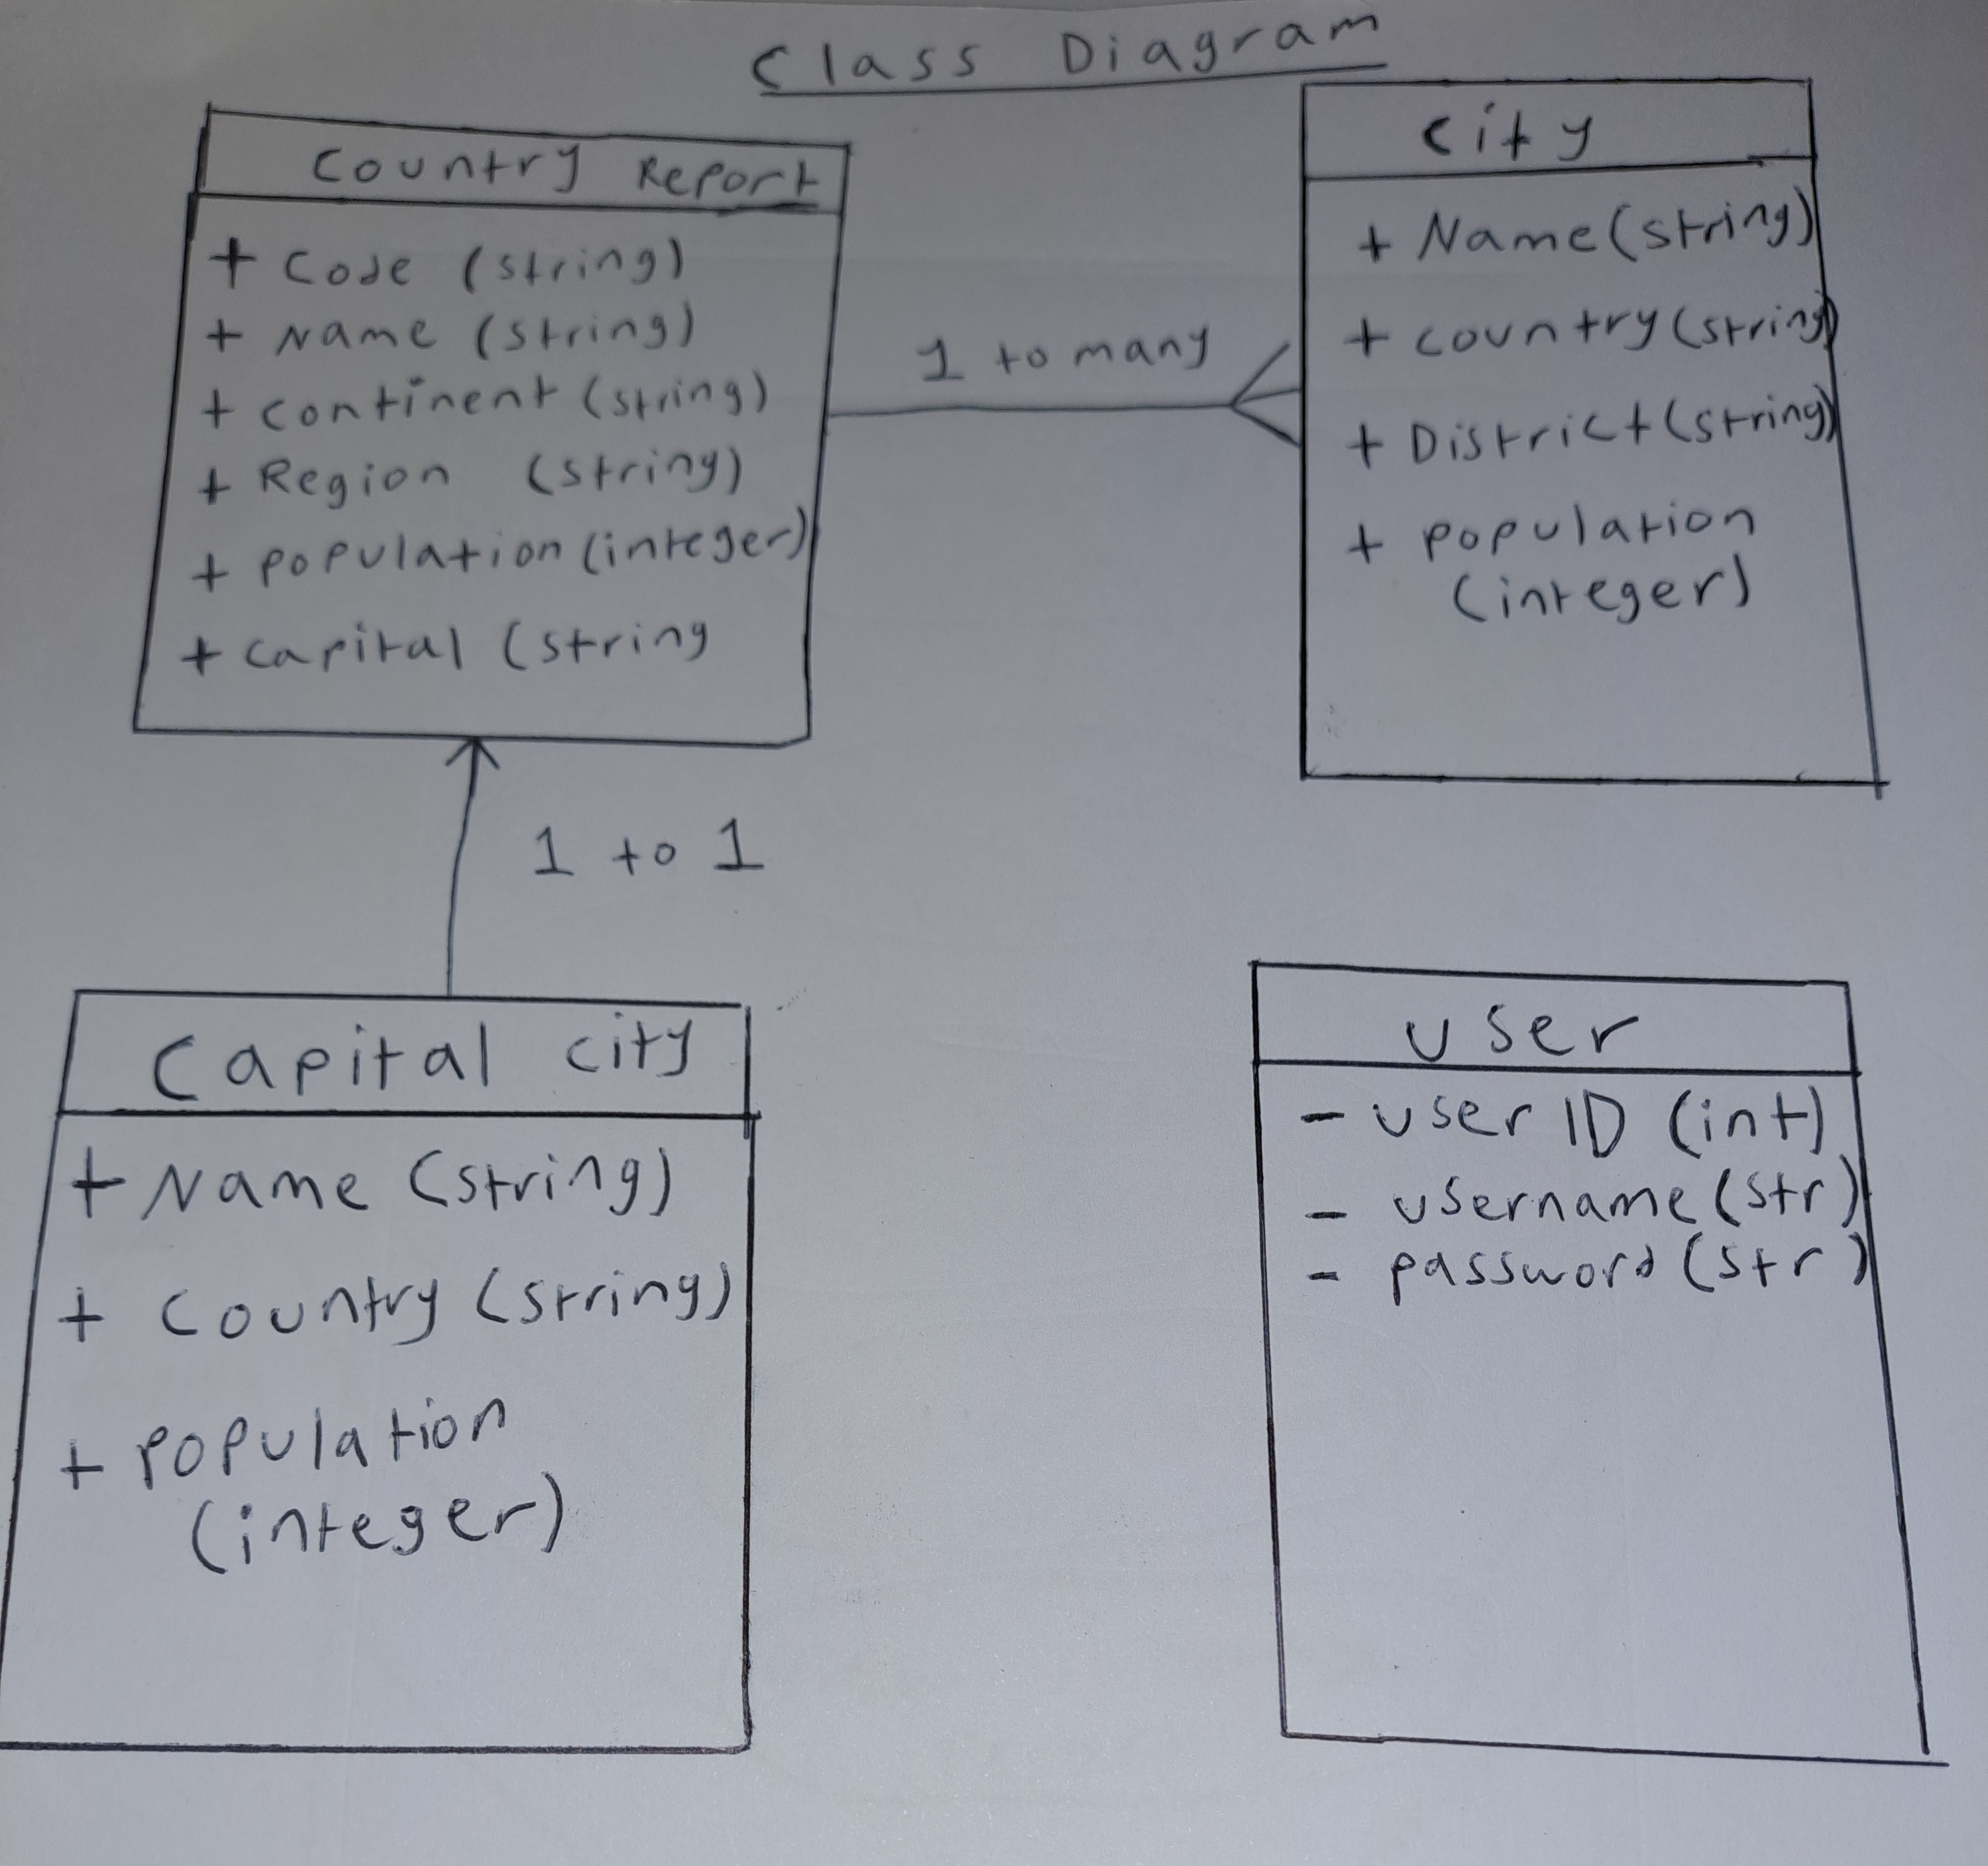 Class Diagram
Country Report
+ Code (string)
+ Name (string)
+ continent (string)
+ Region (string)
+ population (integer)
+ capital (string
1 to many
city
+ Name (string)
+ country (string)
+ District (string)
+ population
(integer)
1 to 1
Capital city
+ Name (string)
+ Country (string)
+ population
(integer)
user
- user ID (int)
- username (str)
- password (str)